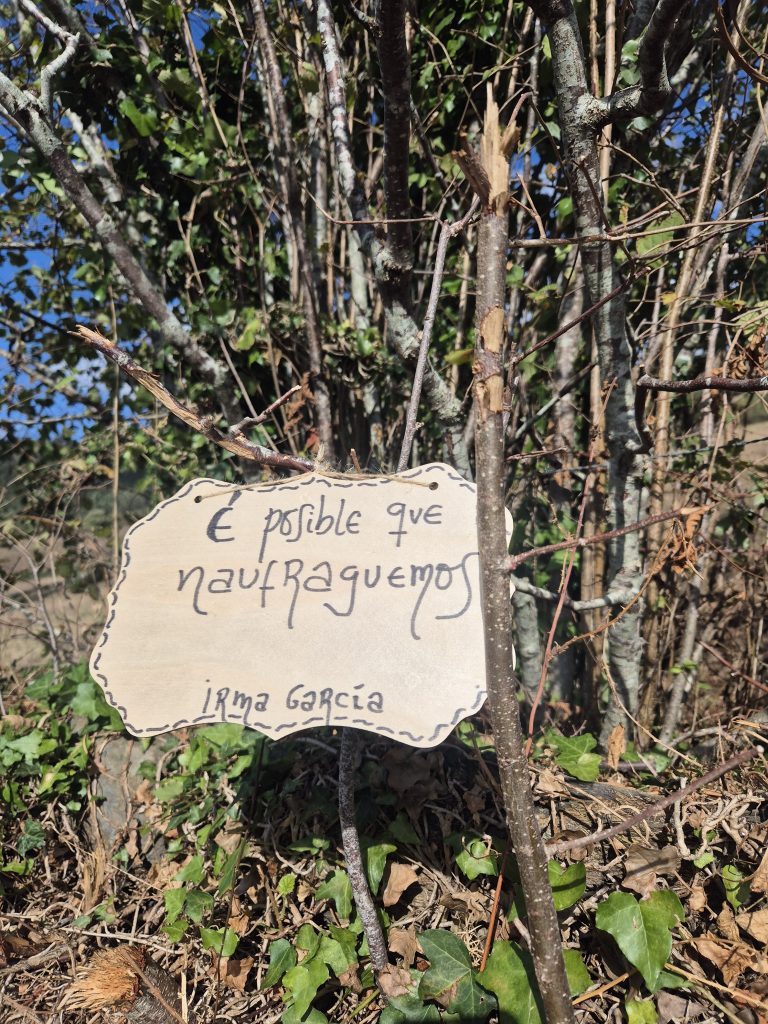 É posible que
naufraguemos
Irma García